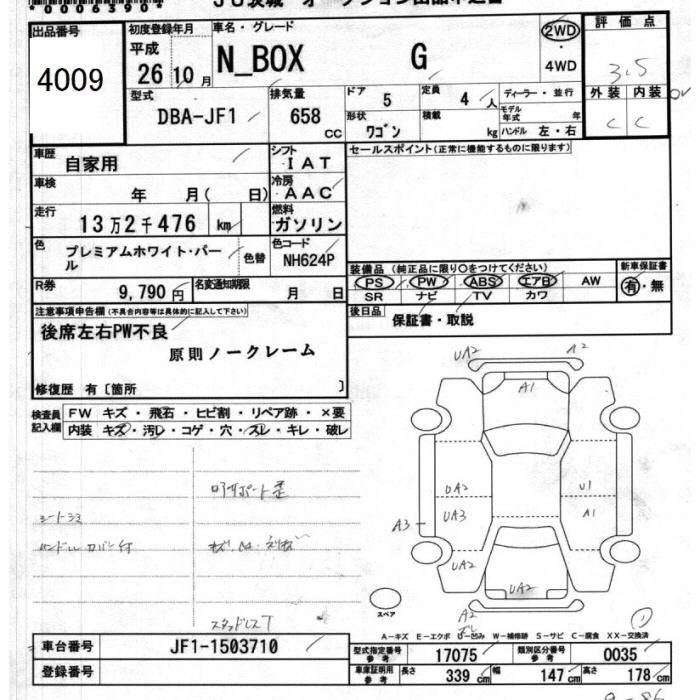 *00063904
JU茨城 オークション出品申込書
出品番号
4009
初度登録年月
平成
26 10 月
車名・グレード
N_BOX G
2WD
・
4WD
評価点
3.5
外装 内装
C C
型式
DBA-JF1
排気量
658
CC
ドア
5
定員
4 人
形状
ワゴン
積載
kg
ディーラー・並行
モデル
年式
年
ハンドル 左・右
車歴
自家用
シフト
・IAT
車検
年 月( 日)
冷房
・AAC
走行
13万2千476 km
燃料
ガソリン
色
プレミアムホワイト・パー
ル
色替
色コード
NH624P
R券
9,790 円
名変通知期限
月 日
セールスポイント(正常に機能するものに限ります)
装備品(純正品に限り○をつけてください)
新車保証書
PS PW ABS エアB AW
SR ナビ TV カワ
有・無
後日品
保証書・取説
注意事項申告欄(不具合内容等は具体的に記入して下さい)
後席左右PW不良
原則ノークレーム
修復歴 有〔箇所 〕
検査員
記入欄
FW キズ・飛石・ヒビ割・リペア跡・×要
内装 キズ・汚レ・コゲ・穴・スレ・キレ・破レ
シートシミ
ハンドルカバー付
スタッドレス7
UA2
A2
A1
UA2
U1
UA3
A1
A3
UA2
UA2
A2
スペア
A-キズ E-エクボ U-凹み W-補修跡 S-サビ C-腐食 XX-交換済
車台番号
JF1-1503710
登録番号
型式指定番号
参考
17075
類別区分番号
参考
0035
車庫証明用
参考
長さ
339 cm
幅
147 cm
高さ
178 cm